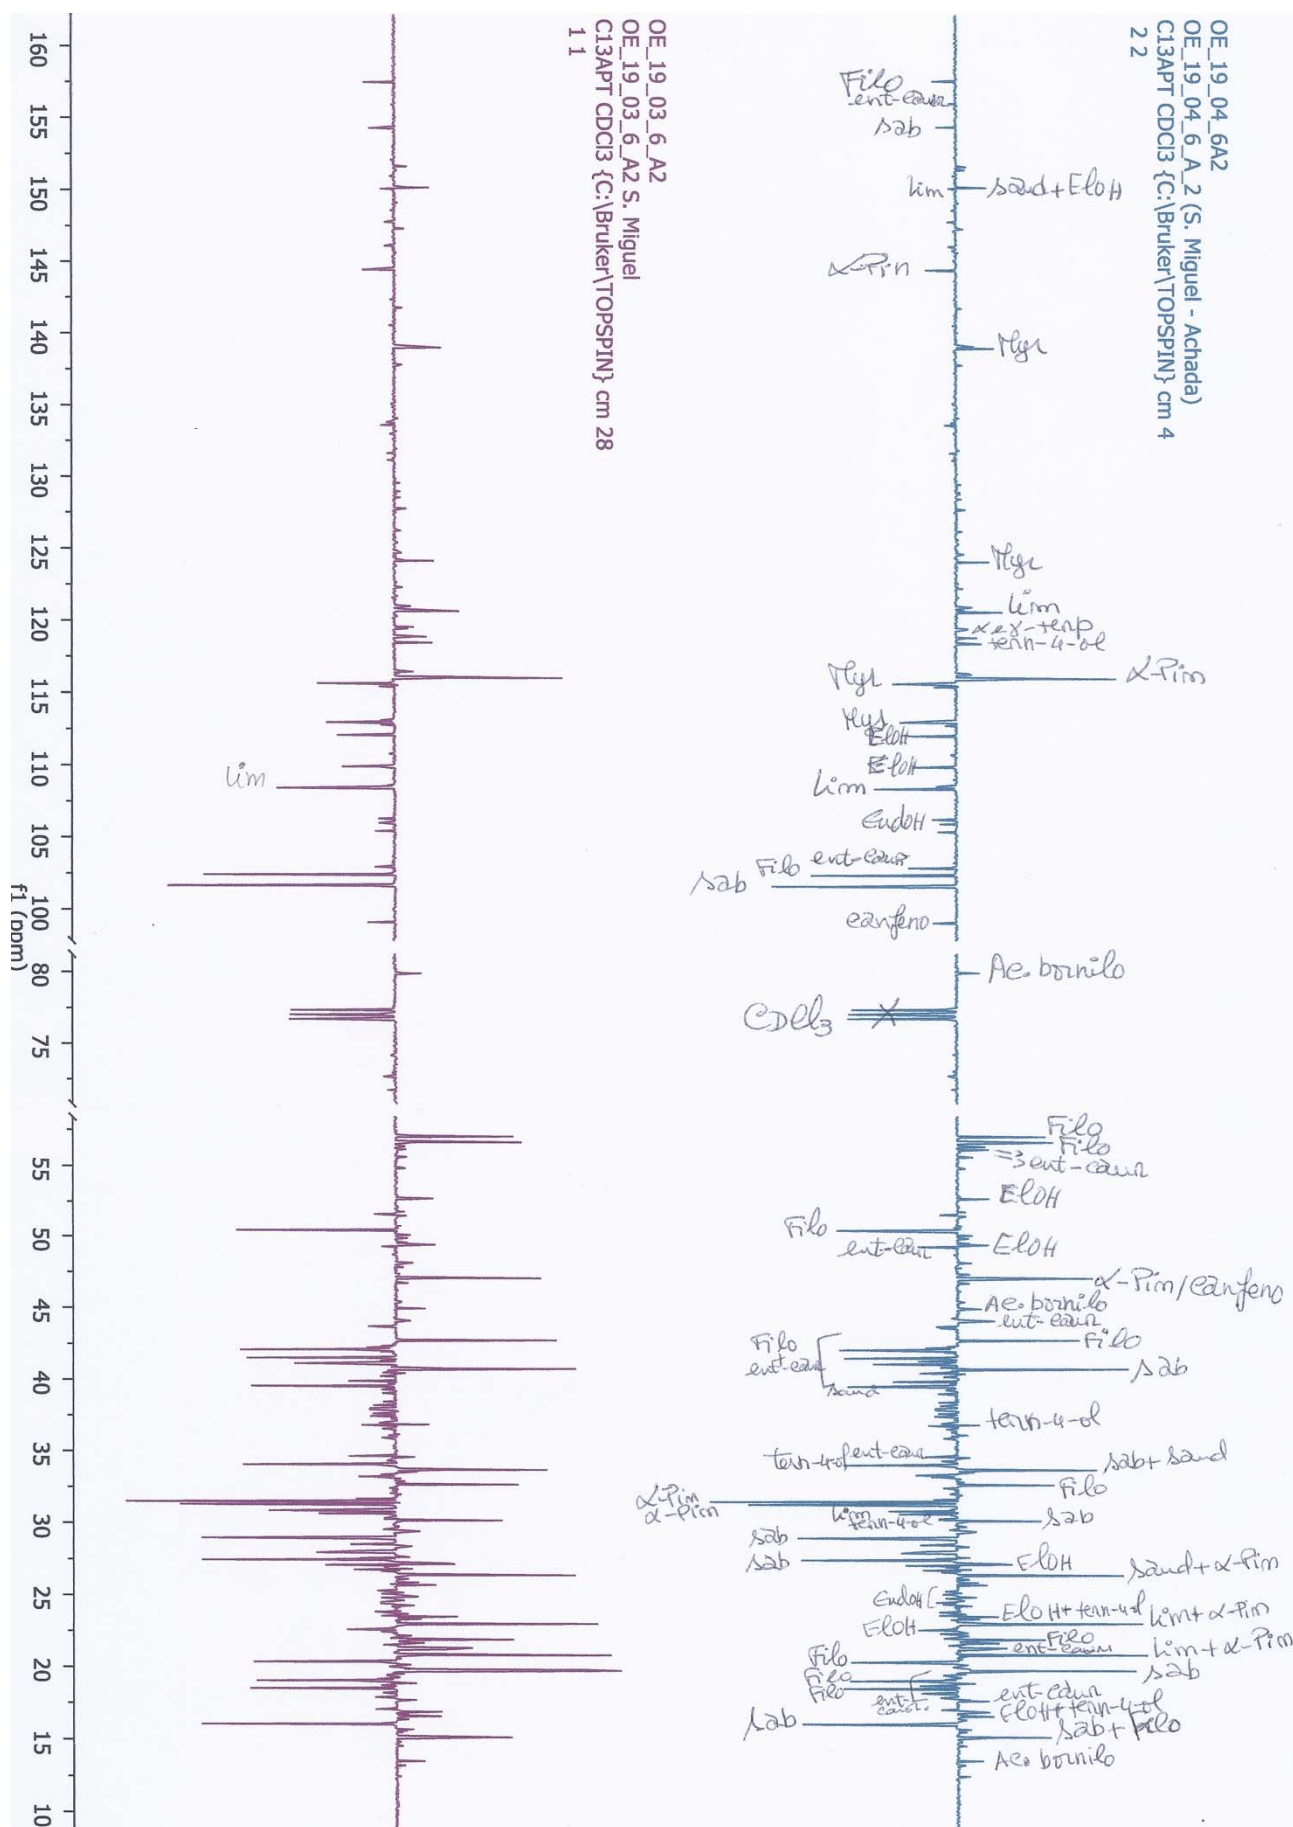 OE_19_04_6A2
OE_19_04_6_A_2 (S. Miguel - Achada)
C13APT CDCl3 {C:\Bruker\TOPSPIN} cm 4
2 2
OE_19_03_6_A2
OE_19_03_6_A2 S. Miguel
C13APT CDCl3 {C:\Bruker\TOPSPIN} cm 28
1 1
Filo
ent-caur
sab
lim
sand+EloH
α-Pin
Myr
Myr
Lim
α e γ-terp
terp-4-ol
α-Pin
Myr
Myr
EloH
EloH
Lim
EudoH
ent-caur
Filo
sab
canfeno
lim
Ac. bornilo
CDCl3
Filo
Filo
=3 ent-caur
EloH
Filo
ent-caur
EloH
α-Pin/canfeno
Ac. bornilo
ent-caur
Filo
Filo
ent-caur
sand
sab
terp-4-ol
terp-4-ol
ent-caur
sab+ sand
Filo
α-Pin
α-Pin
Lim
terp-4-ol
sab
sab
sab
EloH
sand+α-Pin
EudoH
EloH
EloH+ terp-4-ol
Lim+ α-Pin
Filo
ent-caur
Lim+α-Pin
sab
Filo
Filo
Filo
ent-caur.
ent-caur
EloH+terp-4-ol
sab+Filo
sab
Ac. bornilo
160 155 150 145 140 135 130 125 120 115 110 105 100 80 75 55 50 45 40 35 30 25 20 15 10
f1 (ppm)